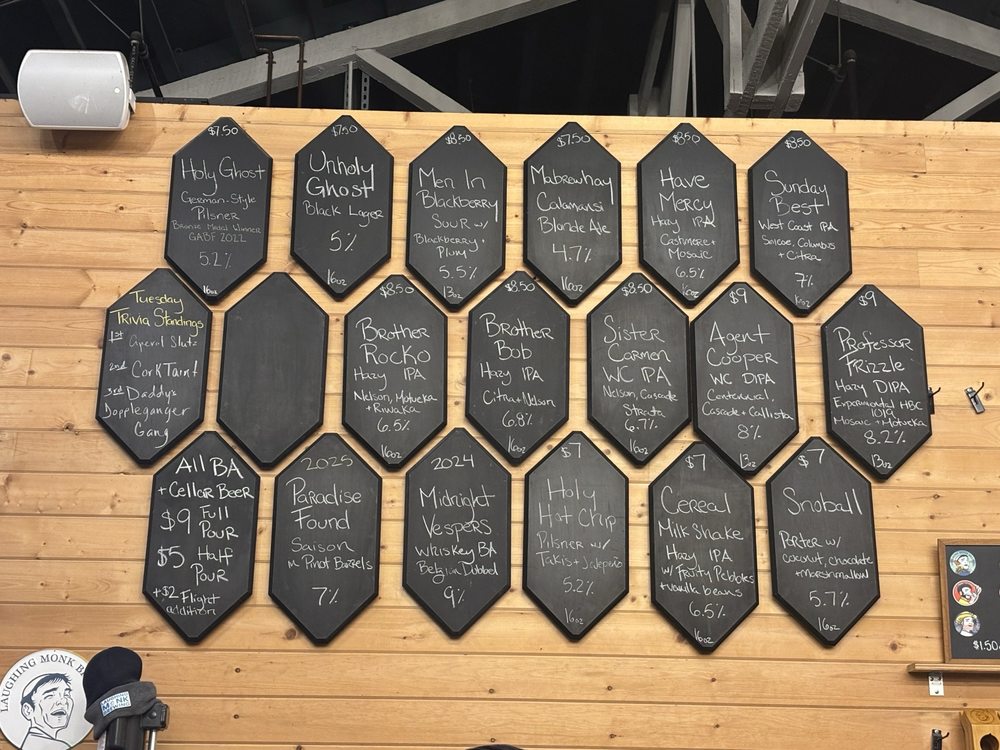 $7.50
Holy Ghost
German-Style
Pilsner
Bronze Medal Winner
GABF 2022
5.2%
16oz
$7.50
Unholy
Ghost
Black Lager
5%
16oz
$8.50
Men In
Blackberry
Sour w/
Blackberry +
Plum
5.5%
13oz
$7.50
Mabrewhay
Calamansi
Blonde Ale
4.7%
16oz
$8.50
Have
Mercy
Hazy IPA
Cashmere +
Mosaic
6.5%
16oz
$8.50
Sunday
Best
West Coast IPA
Simcoe, Columbus
+ Citra
7%
16oz
Tuesday
Trivia Standings
1st Aperol Slutz
2nd Cork Taint
3rd Daddy's
Doppleganger
Gang
$8.50
Brother
Rocko
Hazy IPA
Nelson, Motueka
+ Riwaka
6.5%
16oz
$8.50
Brother
Bob
Hazy IPA
Citra + Nelson
6.8%
16oz
$8.50
Sister
Carmen
WC IPA
Nelson, Cascade
Strata
6.7%
16oz
$9
Agent
Cooper
WC DIPA
Centennial,
Cascade + Callista
8%
13oz
$9
Professor
Frizzle
Hazy DIPA
Experimental HBC
1019
Mosaic + Motueka
8.2%
13oz
All BA
+ Cellar Beer
$9 Full
Pour
$5 Half
Pour
+$2 Flight
addition
2025
Paradise
Found
Saison
in Pinot Barrels
7%
2024
Midnight
Vespers
Whiskey BA
Belgian Dubbel
9%
$7
Holy
Hot Chip
Pilsner w/
Takis + Jalapeño
5.2%
16oz
$7
Cereal
Milk Shake
Hazy IPA
w/ Fruity Pebbles
+ vanilla beans
6.5%
16oz
$7
Snoball
Porter w/
coconut, chocolate
+ marshmallow
5.7%
16oz
$1.50
LAUGHING MONK B
LAUGHING
MONK